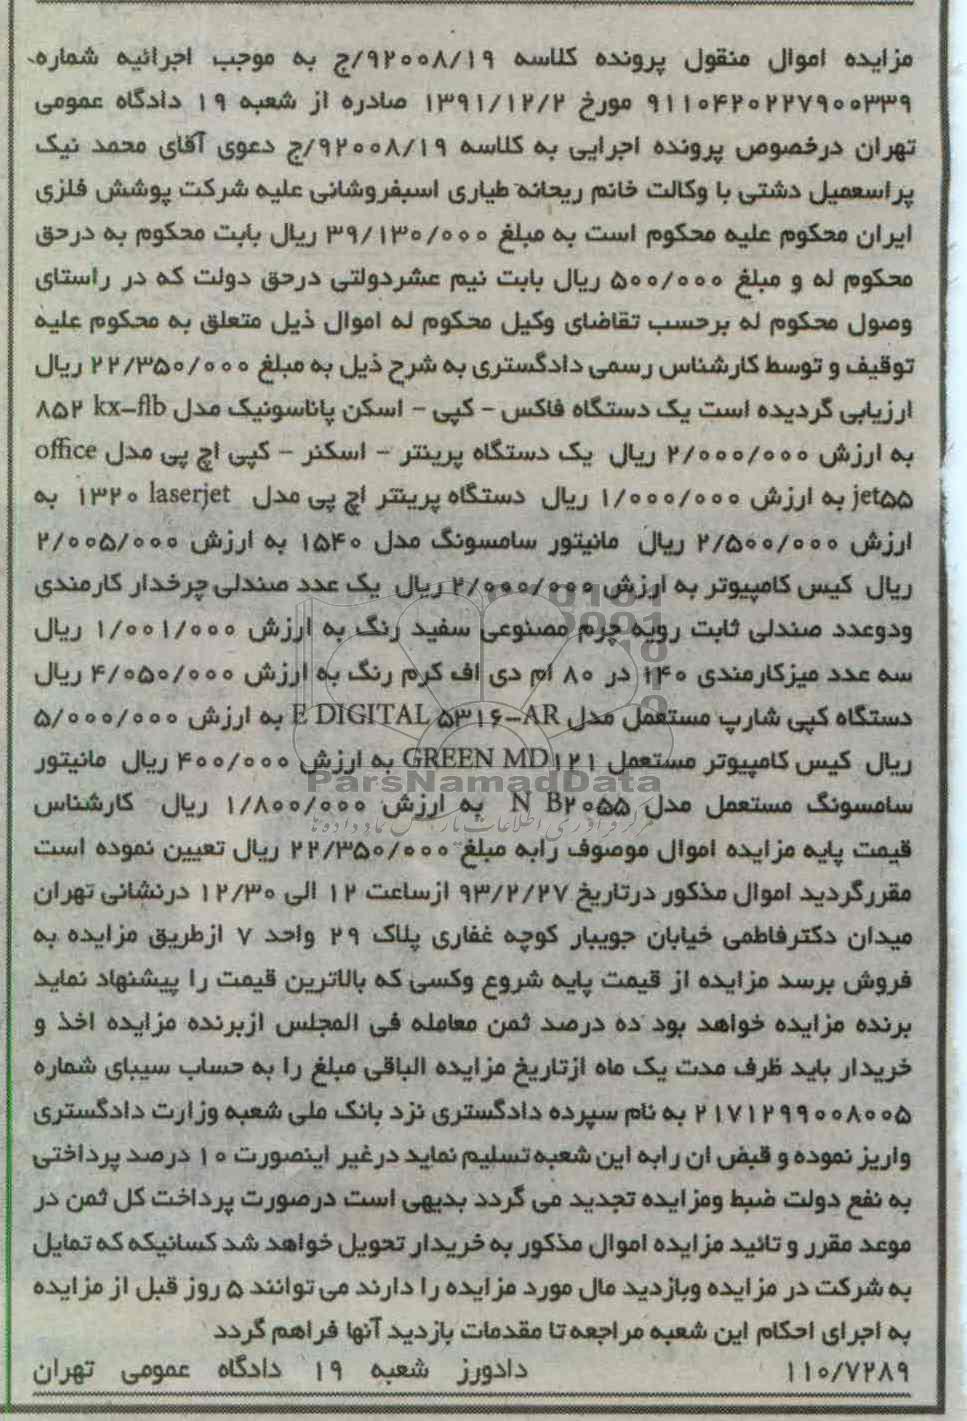 مزایده اموال منقول پرونده کلاسه ۹۲۰۰۸/۱۹/ج به موجب اجرائیه شماره
۹۱۱۰۴۲۰۲۲۷۹۰۰۳۳۹ مورخ ۱۳۹۱/۱۲/۲ صادره از شعبه ۱۹ دادگاه عمومی
تهران درخصوص پرونده اجرایی به کلاسه ۹۲۰۰۸/۱۹/ج دعوی آقای محمد نیک
پراسمعیل دشتی با وکالت خانم ریحانه طیاری اسبفروشانی علیه شرکت پوشش فلزی
ایران محکوم علیه محکوم است به مبلغ ۳۹/۱۳۰/۰۰۰ ریال بابت محکوم به درحق
محکوم له و مبلغ ۵۰۰/۰۰۰ ریال بابت نیم عشردولتی درحق دولت که در راستای
وصول محکوم له برحسب تقاضای وکیل محکوم له اموال ذیل متعلق به محکوم علیه
توقیف و توسط کارشناس رسمی دادگستری به شرح ذیل به مبلغ ۲۲/۳۵۰/۰۰۰ ریال
ارزیابی گردیده است یک دستگاه فاکس - کپی - اسکن پاناسونیک مدل kx-flb ۸۵۲
به ارزش ۲/۰۰۰/۰۰۰ ریال یک دستگاه پرینتر - اسکنر - کپی اچ پی مدل office
jet۵۵ به ارزش ۱/۰۰۰/۰۰۰ ریال دستگاه پرینتر اچ پی مدل laserjet ۱۳۲۰ به
ارزش ۲/۵۰۰/۰۰۰ ریال مانیتور سامسونگ مدل ۱۵۴۰ به ارزش ۲/۰۰۵/۰۰۰
ریال کیس کامپیوتر به ارزش ۲/۰۰۰/۰۰۰ ریال یک عدد صندلی چرخدار کارمندی
ودوعدد صندلی ثابت رویه چرم مصنوعی سفید رنگ به ارزش ۱/۰۰۱/۰۰۰ ریال
سه عدد میزکارمندی ۱۴۰ در ۸۰ ام دی اف کرم رنگ به ارزش ۴/۰۵۰/۰۰۰ ریال
دستگاه کپی شارپ مستعمل مدل E DIGITAL ۵۳۱۶-AR به ارزش ۵/۰۰۰/۰۰۰
ریال کیس کامپیوتر مستعمل GREEN MD۱۲۱ به ارزش ۴۰۰/۰۰۰ ریال مانیتور
ParsNamadData
سامسونگ مستعمل مدل N B۲۰۵۵ به ارزش ۱/۸۰۰/۰۰۰ ریال کارشناس
قیمت پایه مزایده اموال موصوف رابه مبلغ ۲۲/۳۵۰/۰۰۰ ریال تعیین نموده است
مقررگردید اموال مذکور درتاریخ ۹۳/۲/۲۷ ازساعت ۱۲ الی ۱۲/۳۰ درنشانی تهران
میدان دکترفاطمی خیابان جویبار کوچه غفاری پلاک ۲۹ واحد ۷ ازطریق مزایده به
فروش برسد مزایده از قیمت پایه شروع وکسی که بالاترین قیمت را پیشنهاد نماید
برنده مزایده خواهد بود ده درصد ثمن معامله فی المجلس ازبرنده مزایده اخذ و
خریدار باید ظرف مدت یک ماه ازتاریخ مزایده الباقی مبلغ را به حساب سیبای شماره
۲۱۷۱۲۹۹۰۰۸۰۰۵ به نام سپرده دادگستری نزد بانک ملی شعبه وزارت دادگستری
واریز نموده و قبض ان رابه این شعبه تسلیم نماید درغیر اینصورت ۱۰ درصد پرداختی
به نفع دولت ضبط ومزایده تجدید می گردد بدیهی است درصورت پرداخت کل ثمن در
موعد مقرر و تائید مزایده اموال مذکور به خریدار تحویل خواهد شد کسانیکه که تمایل
به شرکت در مزایده وبازدید مال مورد مزایده را دارند می توانند ۵ روز قبل از مزایده
به اجرای احکام این شعبه مراجعه تا مقدمات بازدید آنها فراهم گردد
۱۱۰/۷۲۸۹ دادورز شعبه ۱۹ دادگاه عمومی تهران